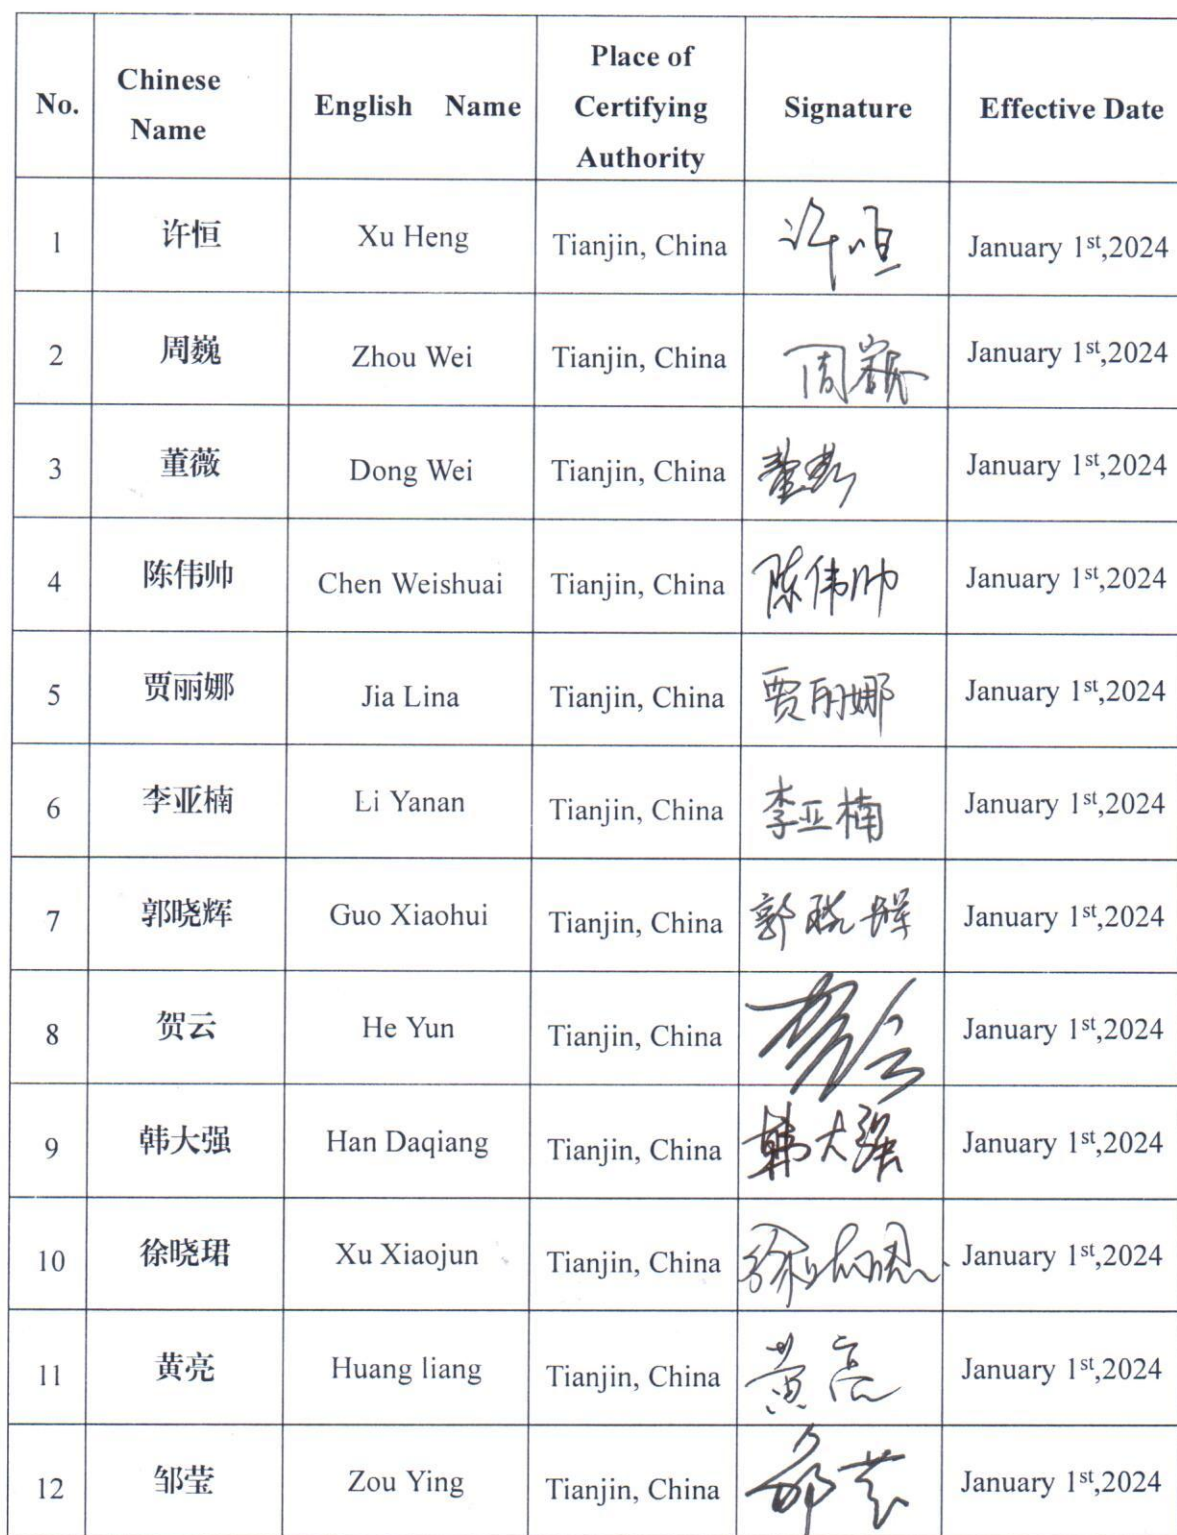 No. Chinese Name English Name Place of Certifying Authority Signature Effective Date
1 许恒 Xu Heng Tianjin, China 许恒 January 1st,2024
2 周巍 Zhou Wei Tianjin, China 周巍 January 1st,2024
3 董薇 Dong Wei Tianjin, China 董薇 January 1st,2024
4 陈伟帅 Chen Weishuai Tianjin, China 陈伟帅 January 1st,2024
5 贾丽娜 Jia Lina Tianjin, China 贾丽娜 January 1st,2024
6 李亚楠 Li Yanan Tianjin, China 李亚楠 January 1st,2024
7 郭晓辉 Guo Xiaohui Tianjin, China 郭晓辉 January 1st,2024
8 贺云 He Yun Tianjin, China January 1st,2024
9 韩大强 Han Daqiang Tianjin, China 韩大强 January 1st,2024
10 徐晓珺 Xu Xiaojun Tianjin, China January 1st,2024
11 黄亮 Huang liang Tianjin, China 黄亮 January 1st,2024
12 邹莹 Zou Ying Tianjin, China January 1st,2024